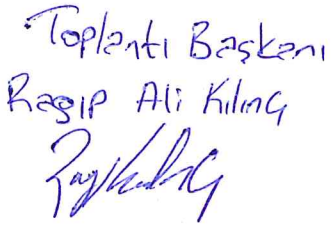 Toplantı Başkanı
Ragıp Ali Kılınç